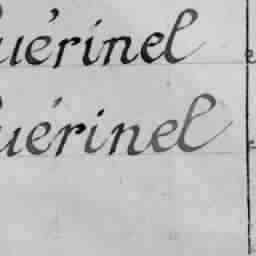 uérinel
uérinel